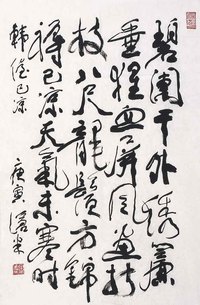 碧闌干外綉簾
垂猩血屏風画折
枝八尺龍鬚方錦
褥已凉天氣未寒時
韓偓已凉
庚寅